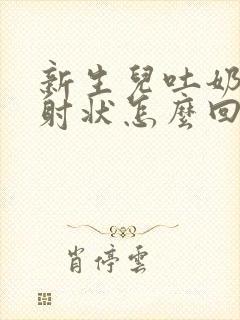 新生兒吐奶
射狀怎麼回
肖停雲